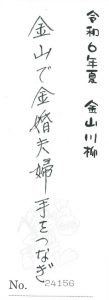 令和6年夏 金山川柳
金山で金婚夫婦手をつなぎ
No. 24156